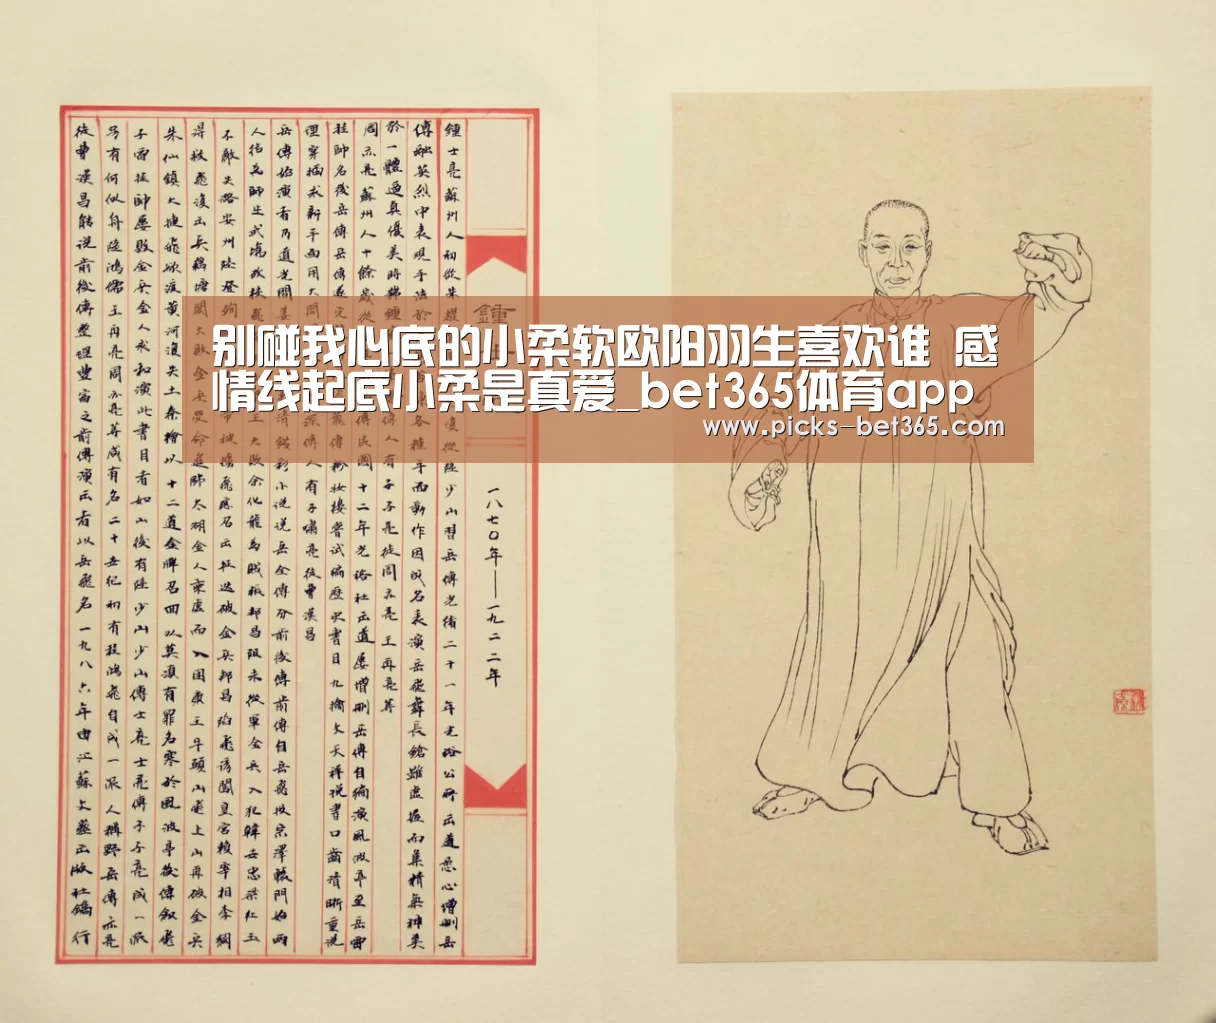 别碰我心底的小柔软欧阳羽生喜欢谁 感
情线起底小柔是真爱_bet365体育app
www.picks-bet365.com
鍾
一八七〇年——一九二二年
鍾士亮蘇州人初從朱耀 復從陸少山習岳傳光緒二十一年光裕公所出道悉心增刪岳
傳融英烈中表現手法於 各種手面動作因成名表演岳飛舞長鎗雖虛擬而集精氣神美
於一體逼真優美時稱鍾 傳人有子子亮徒周亦亮王再亮等
周亦亮蘇州人十餘歲從 傳民國十二年光裕社出道屢增刪岳傳自編演風波亭至岳雷
挂帥名後岳傳岳傳遂完 龍傳粉妝樓嘗試編歷史書目 文天祥說書口齒清晰重說
理穿插求新手面用大開 派傳人有子嘯亮徒曹漢昌
岳傳始演者乃道光間姜 清錢彩小說說岳全傳分前後傳前傳自岳飛投宗澤轅門始兩
人結為師生武場攷校飛 王大敗余化龍為賊拒邦昌阻未從軍金兵入犯韓世忠梁紅玉
不敵失潞安州陸登殉 帝被擄飛應召出征迭破金兵邦昌陷飛誘闖皇宮賴宰相李綱
得救飛復出兵藕塘關大敗金兵受命進師太湖金人乘虛而入困康王牛頭山飛上山再破金兵
朱仙鎮大捷飛欲渡黃河復失土秦檜以十二道金牌召回以莫須有罪名害於風波亭後傳叙飛
子雷挂帥屢敗金兵金人求和演此書目者如山後有陸少山少山傳士亮士亮傳子子亮成一派
另有何似舟陸鴻儒王再亮周亦亮等咸有名二十世紀初有程鴻飛自成一派人稱野岳傳亦亮
徒曹漢昌能說前後傳整理豐富之前傳演出者以岳飛名一九八六年由江蘇文藝出版社鐫行